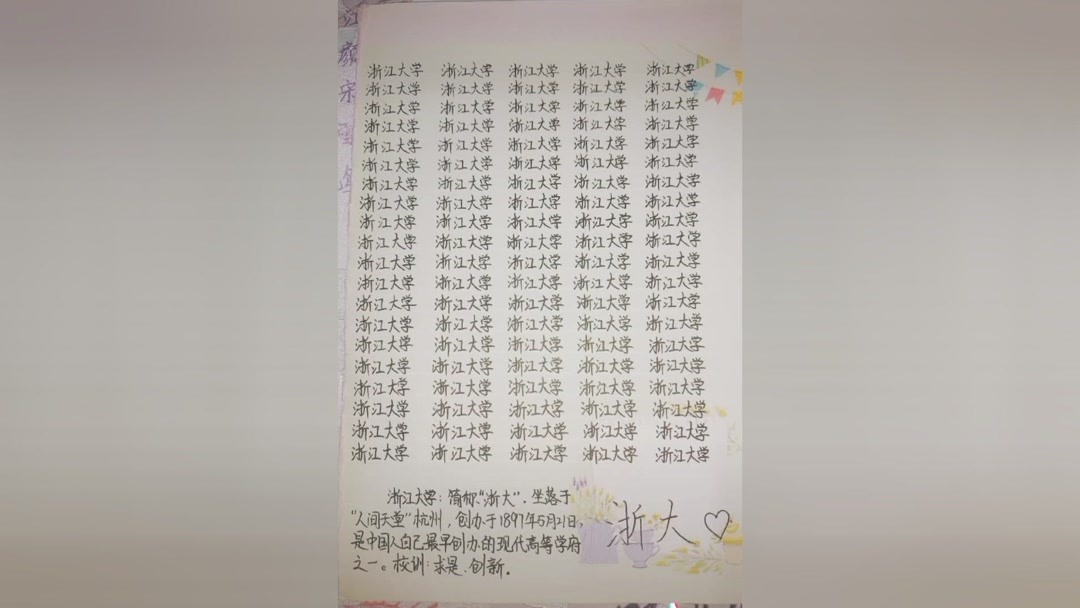 浙江大学 浙江大学 浙江大学 浙江大学 浙江大学
浙江大学 浙江大学 浙江大学 浙江大学 浙江大学
浙江大学 浙江大学 浙江大学 浙江大学 浙江大学
浙江大学 浙江大学 浙江大学 浙江大学 浙江大学
浙江大学 浙江大学 浙江大学 浙江大学 浙江大学
浙江大学 浙江大学 浙江大学 浙江大学 浙江大学
浙江大学 浙江大学 浙江大学 浙江大学 浙江大学
浙江大学 浙江大学 浙江大学 浙江大学 浙江大学
浙江大学 浙江大学 浙江大学 浙江大学 浙江大学
浙江大学 浙江大学 浙江大学 浙江大学 浙江大学
浙江大学 浙江大学 浙江大学 浙江大学 浙江大学
浙江大学 浙江大学 浙江大学 浙江大学 浙江大学
浙江大学 浙江大学 浙江大学 浙江大学 浙江大学
浙江大学 浙江大学 浙江大学 浙江大学 浙江大学
浙江大学 浙江大学 浙江大学 浙江大学 浙江大学
浙江大学 浙江大学 浙江大学 浙江大学 浙江大学
浙江大学 浙江大学 浙江大学 浙江大学 浙江大学
浙江大学 浙江大学 浙江大学 浙江大学 浙江大学
浙江大学 浙江大学 浙江大学 浙江大学 浙江大学
浙江大学 浙江大学 浙江大学 浙江大学 浙江大学
浙江大学：简称“浙大”，坐落于
“人间天堂”杭州，创办于1897年5月21日，
是中国人自己最早创办的现代高等学府
之一。校训：求是、创新。
浙大♡